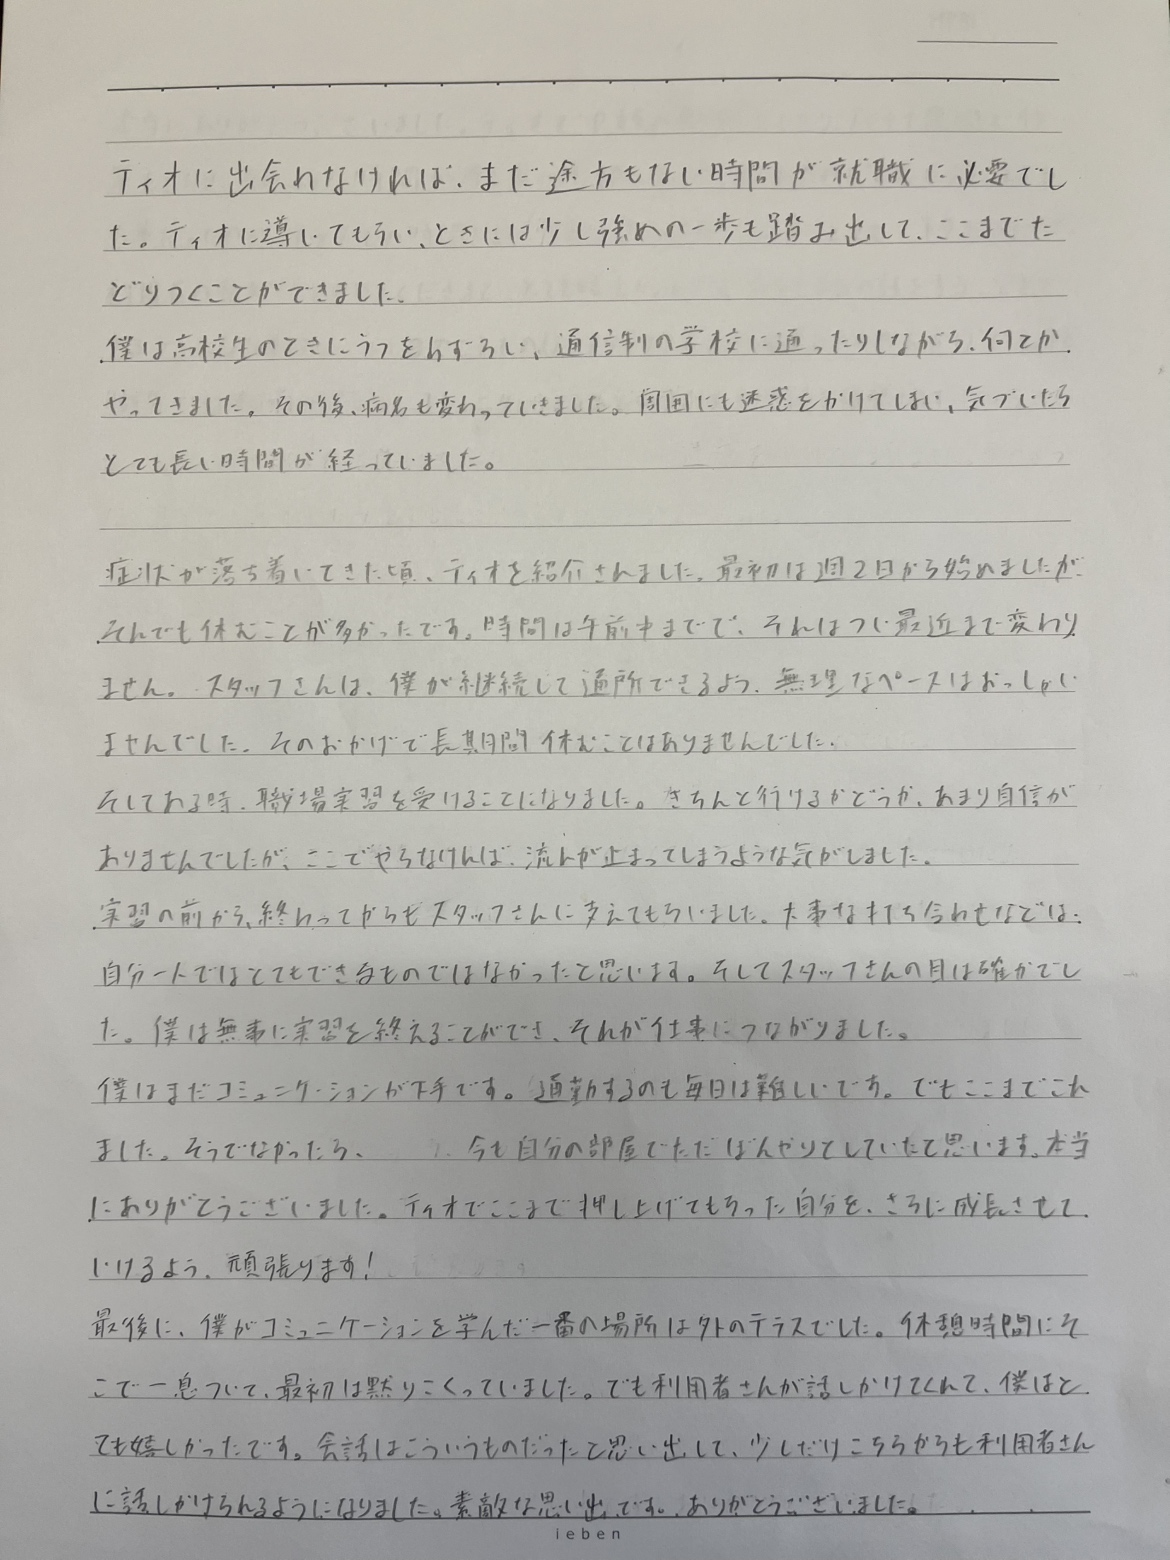 ティオに出会わなければ、まだ途方もない時間が就職に必要でし
た。ティオに導いてもらい、ときには少し強めの一歩も踏み出して、ここまでた
どりつくことができました。
僕は高校生のときにうつをわずらい、通信制の学校に通ったりしながら、何とか
やってきました。その後、病名も変わっていきました。周囲にも迷惑をかけてしまい、気づいたら
とても長い時間が経っていました。
症状が落ち着いてきた頃、ティオを紹介されました。最初は週2日から始めましたが
それでも休むことが多かったです。時間は午前中までで、それはつい最近まで変わり
ません。スタッフさんは、僕が継続して通所できるよう、無理なペースはおっしゃい
ませんでした。そのおかげで長期間休むことはありませんでした。
そしてある時、職場実習を受けることになりました。きちんと行けるかどうか、あまり自信が
ありませんでしたが、ここでやらなければ、流れが止まってしまうような気がしました。
実習の前から、終わってからもスタッフさんに支えてもらいました。大事な打ち合わせなどは、
自分一人ではとてもできるものではなかったと思います。そしてスタッフさんの目は確かでし
た。僕は無事に実習を終えることができ、それが仕事につながりました。
僕はまだコミュニケーションが下手です。通勤するのも毎日は難しいです。でもここまでこれ
ました。そうでなかったら、今も自分の部屋でただぼんやりとしていたと思います。本当
にありがとうございました。ティオでここまで押し上げてもらった自分を、さらに成長させて
いけるよう、頑張ります!
最後に、僕がコミュニケーションを学んだ一番の場所は外のテラスでした。休憩時間にそ
こで一息ついて、最初は黙りこくっていました。でも利用者さんが話しかけてくれて、僕はと
ても嬉しかったです。会話はこういうものだったと思い出して、少しだけこちらからも利用者さん
に話しかけられるようになりました。素敵な思い出です。ありがとうございました。
ieben